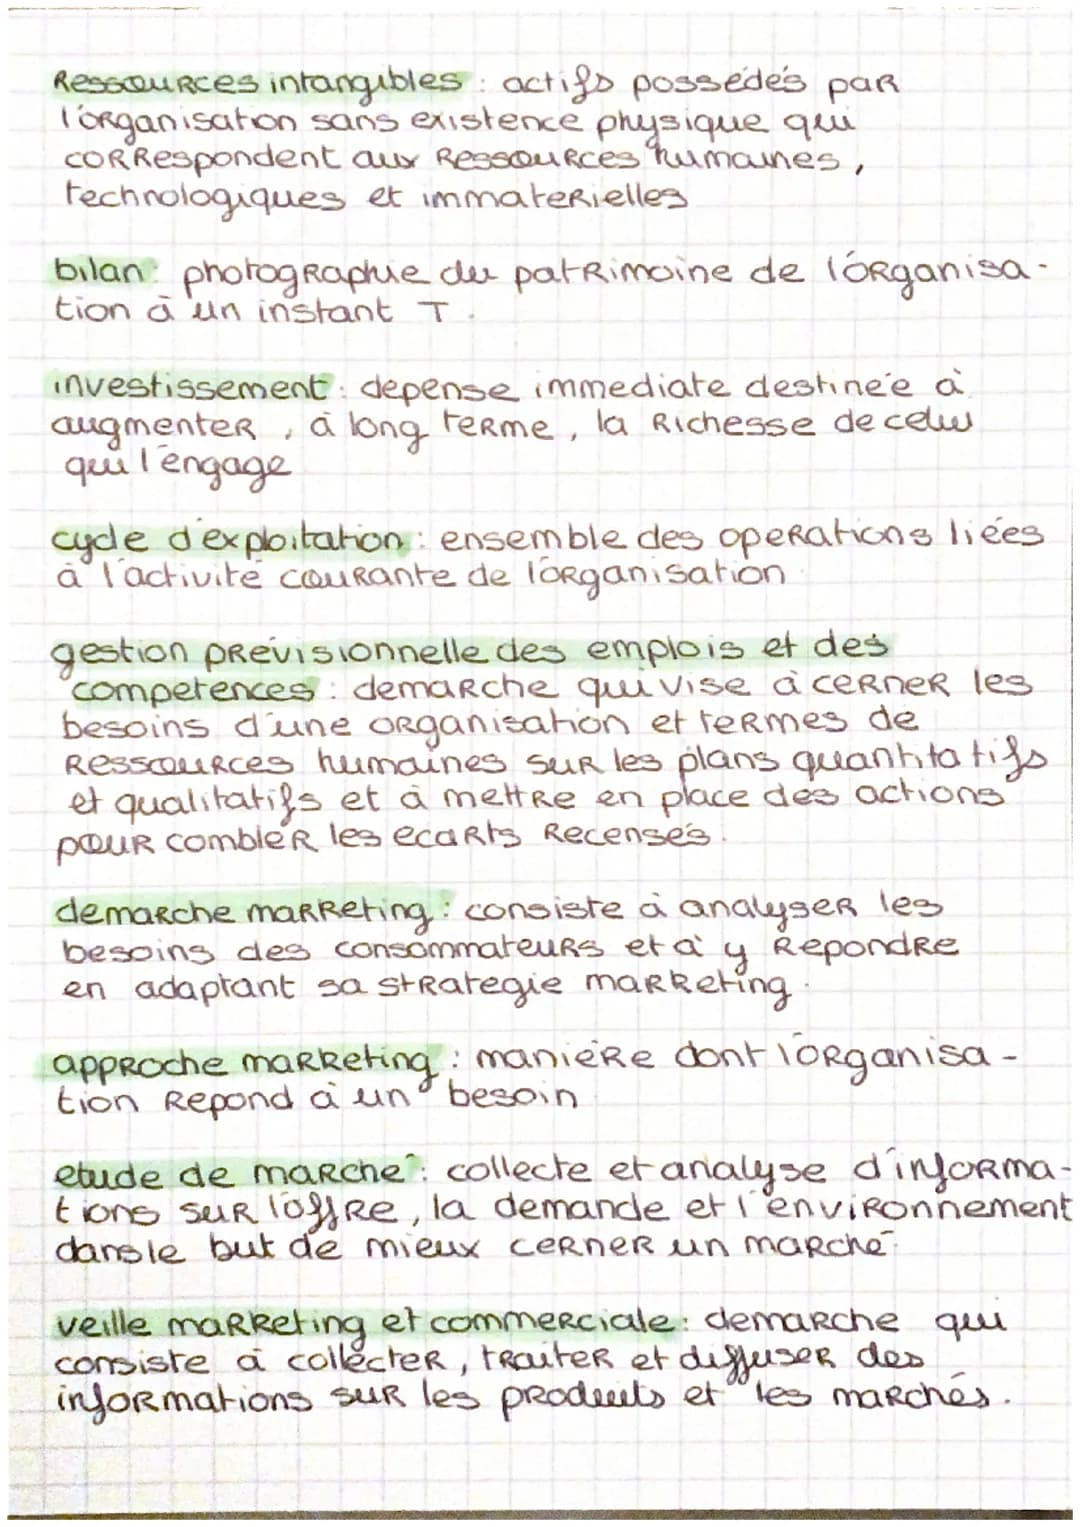 Ressources intangibles : actifs possédés par
l'organisation sans existence physique qui
correspondent aux ressources humaines,
technologiques et immaterielles
bilan : photographie du patrimoine de l'organisa-
tion à un instant T.
investissement : depense immediate destinée à
augmenter, à long terme, la richesse de celui
qui l'engage
cycle d'exploitation : ensemble des operations liées
à l'activité courante de l'organisation
gestion prévisionnelle des emplois et des
competences : demarche qui vise à cerner les
besoins d'une organisation et termes de
ressources humaines sur les plans quantitatifs
et qualitatifs et à mettre en place des actions
pour combler les ecarts recensés.
demarche marketing : consiste à analyser les
besoins des consommateurs et à y repondre
en adaptant sa strategie marketing.
approche marketing : manière dont l'organisa-
tion repond à un besoin
etude de marché : collecte et analyse d'informa-
tions sur l'offre, la demande et l'environnement
dans le but de mieux cerner un marché.
veille marketing et commerciale : demarche qui
consiste à collecter, traiter et diffuser des
informations sur les produits et les marchés.